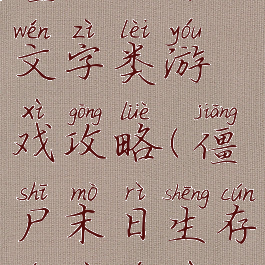 wén zì lèi yóu
文字类游
xì gōng lüè jiāng
戏攻略(僵
shī mò rì shēng cún
尸末日生存